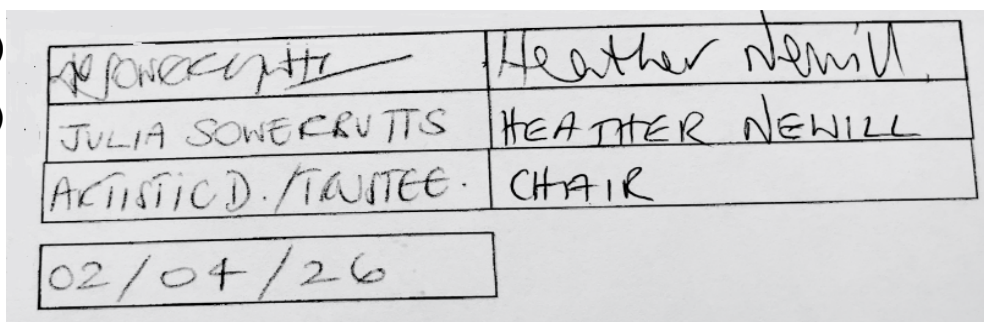 Heather Newill
JULIA SOWERBUTTS HEATHER NEWILL
ARTISTIC D. / TRUSTEE. CHAIR
02/04/26